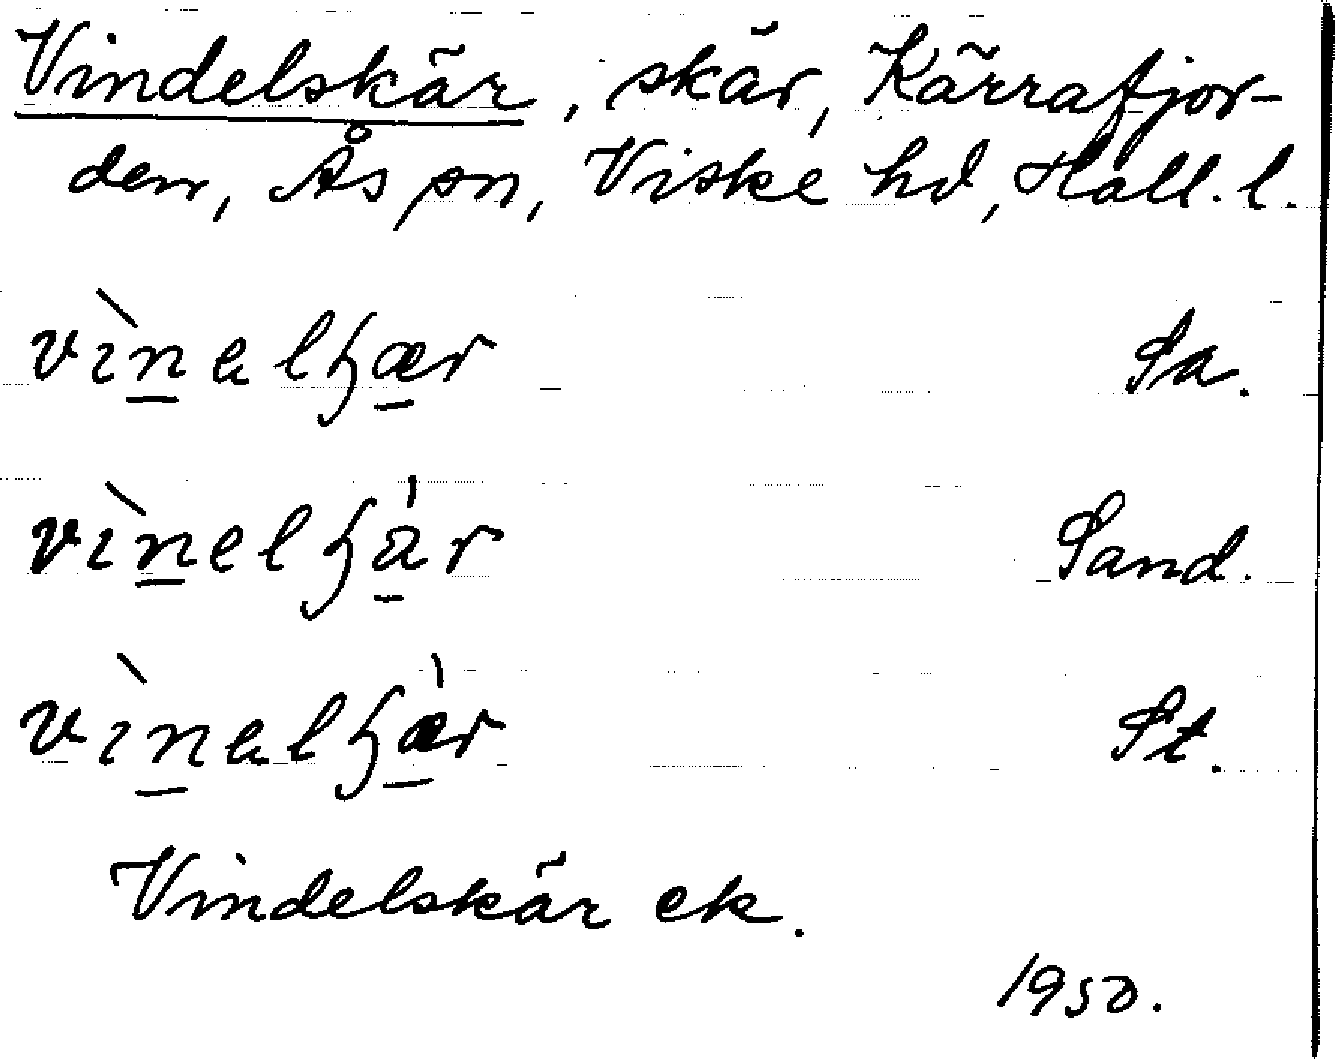 Vindelskär, skär, Kärrafjor-
den, Ås sn, Viske hd, Hall. l.
vìnelɧær Sa.
vìnelɧàr Sand.
vìnelɧær St.
Vindelskär ek.
1950.